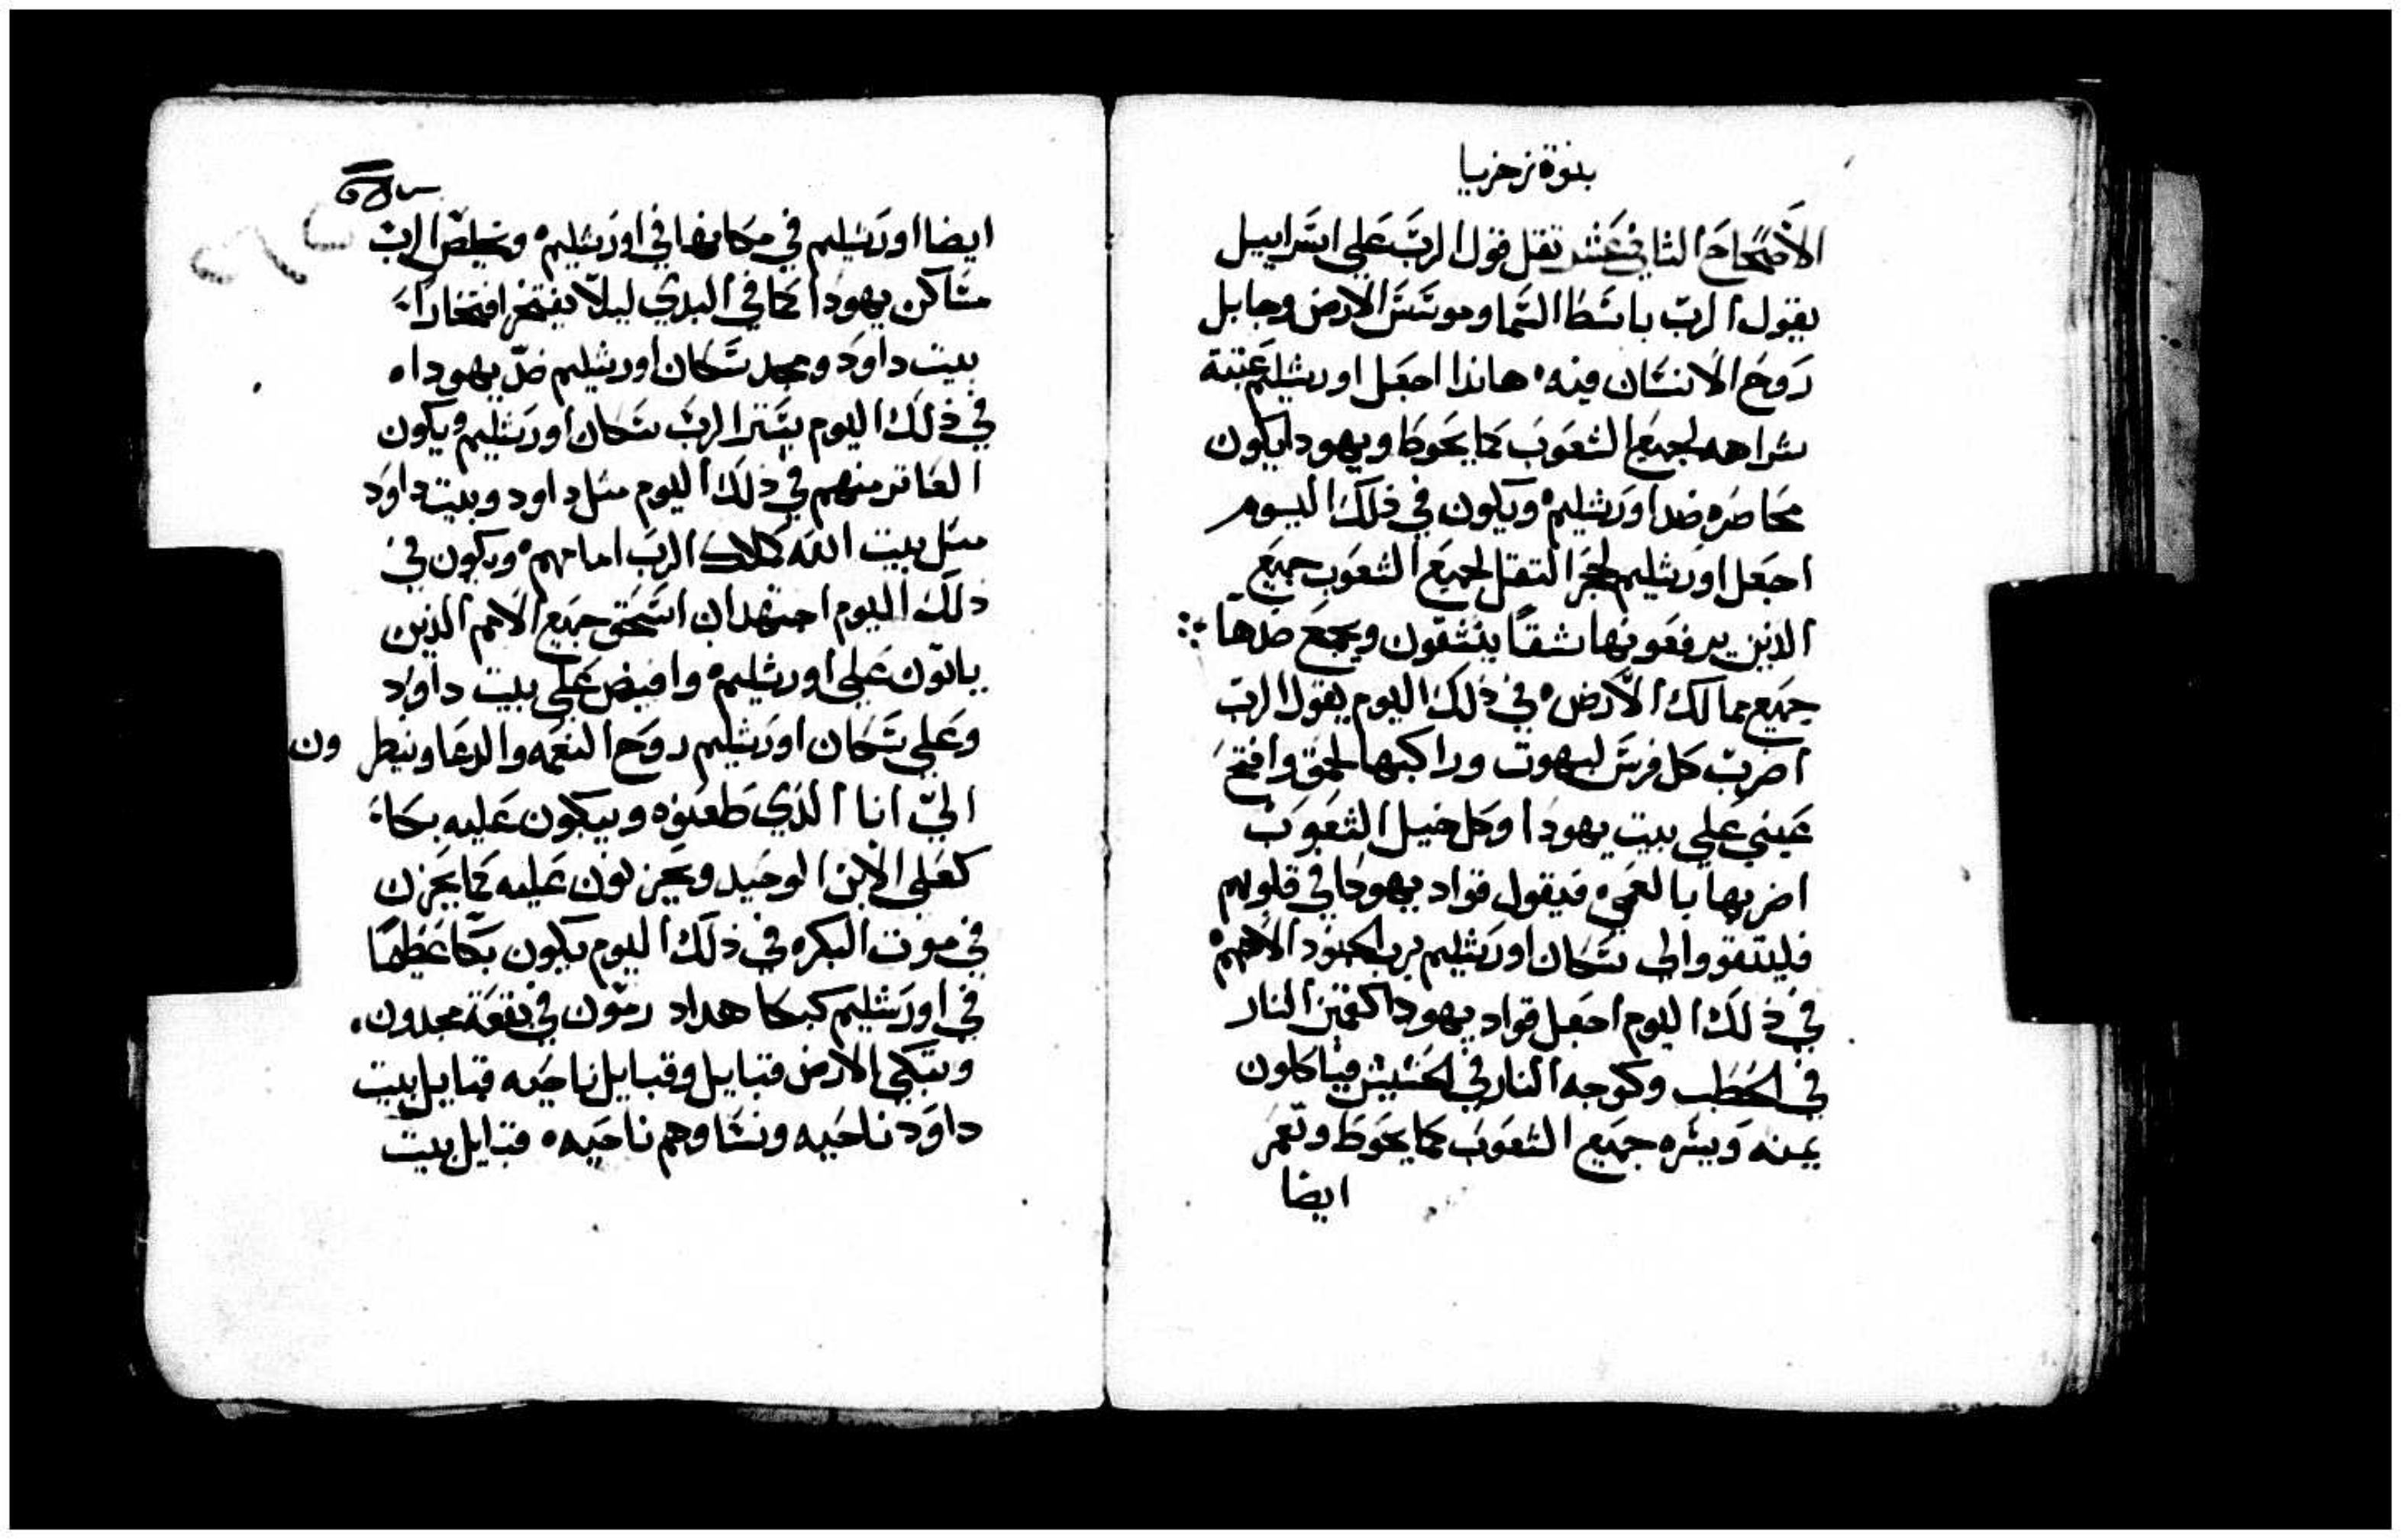 بنوة زخريا
الاصحاح الثاني عشر تقل قول الرب علي اسراييل
يقول الرب باسط السما وموسس الارض وجابل
روح الانسان فيه هاندا اجعل اورشليم عتبة
شراهه لجميع الشعوب كما يحوط ويهودا يكون
محاصره ضد اورشليم ويكون في ذلك اليوم
اجعل اورشليم لحجر التقل لجميع الشعوب جميع
الذين يرفعونها شقا ينشقون ويجمع ضدها
جميع ممالك الارض في ذلك اليوم يقول الرب
اضرب كل فرس لبهوت وراكبها لحمق وافتح
عيني علي بيت يهودا وكل خيل الشعوب
اضربها بالعمي فيقول قواد يهودا في قلوبهم
فليتقووا لي سكان اورشليم برب الجنود الاههم
في ذلك اليوم اجعل قواد يهودا كقمين النار
في الحطب وكوجه النار في الحشيش فياكلون
يمنه ويسره جميع الشعوب كما يحوط وتعمر
ايضا
ايضا اورشليم في مكانها في اورشليم ويخلص الرب
مساكن يهودا كما في البدي ليلا يفتخر افتخارا
بيت داود ومجد سكان اورشليم ضد يهودا
في ذلك اليوم يستر الرب سكان اورشليم ويكون
العاتر منهم في ذلك اليوم متل داود وبيت داود
متل بيت الله كملاك الرب امامهم ويكون في
ذلك اليوم اجتهد ان اسحق جميع الامم الذين
ياتون علي اورشليم وافيض علي بيت داود
وعلي سكان اورشليم روح النعمه والدعا وينطرون
الي انا الذي طعنوه ويبكون عليه بكاء
كعلي الابن الوحيد ويحزنون عليه كما يحزن
في موت البكر في ذلك اليوم يكون بكا عظيما
في اورشليم كبكا هداد رمون في بقعة مجدون
وتبكي الارض قبايل وقبايل ناحيه قبايل بيت
داود ناحيه ونساوهم ناحيه قبايل بيت